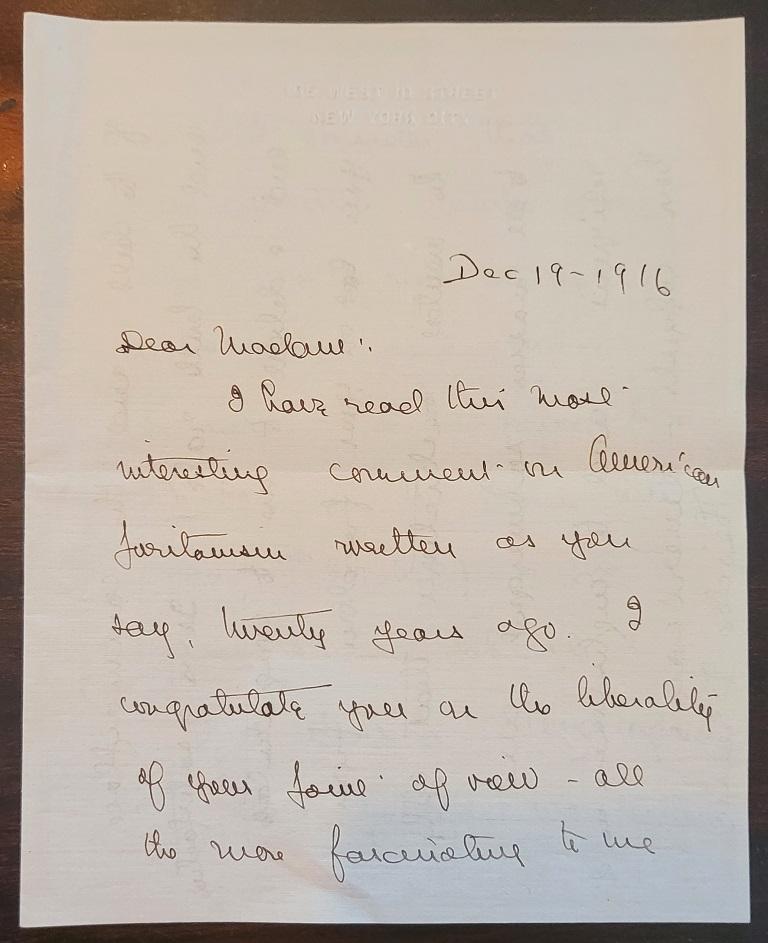 WEST STREET
NEW YORK CITY
Dec 19-1916
Dear Madam:
I have read this most
interesting comment on American
Puritanism written as you
say, twenty years ago. I
congratulate you on the liberality
of your point of view - all
the more fascinating to me